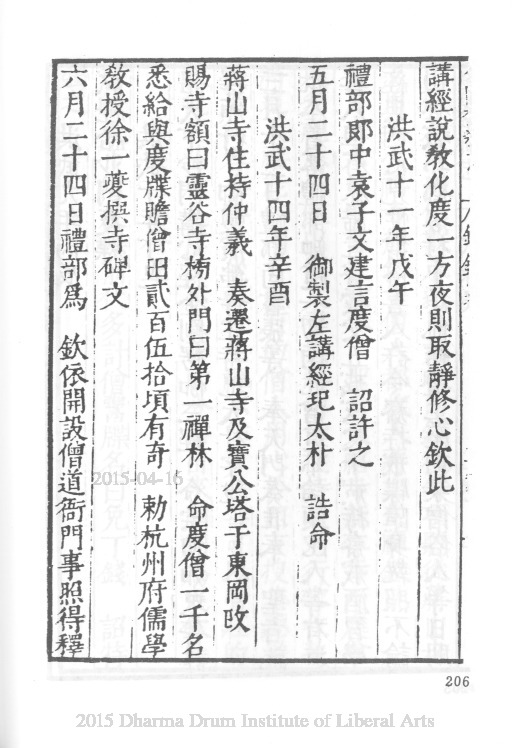 講經說教化度一方夜則取靜修心欽此
洪武十一年戊午
禮部郎中袁子文建言度僧　詔許之
五月二十四日　御製左講經玘太朴　誥命
洪武十四年辛酉
蔣山寺住持仲義　奏遷蔣山寺及寶公塔于東岡改
賜寺額曰靈谷寺榜外門曰第一禪林　命度僧一千名
悉給與度牒贍僧田貳百伍拾頃有奇　勅杭州府儒學
教授徐一夔撰寺碑文
六月二十四日禮部爲　欽依開設僧道衙門事照得釋
206
2015-04-16
2015 Dharma Drum Institute of Liberal Arts